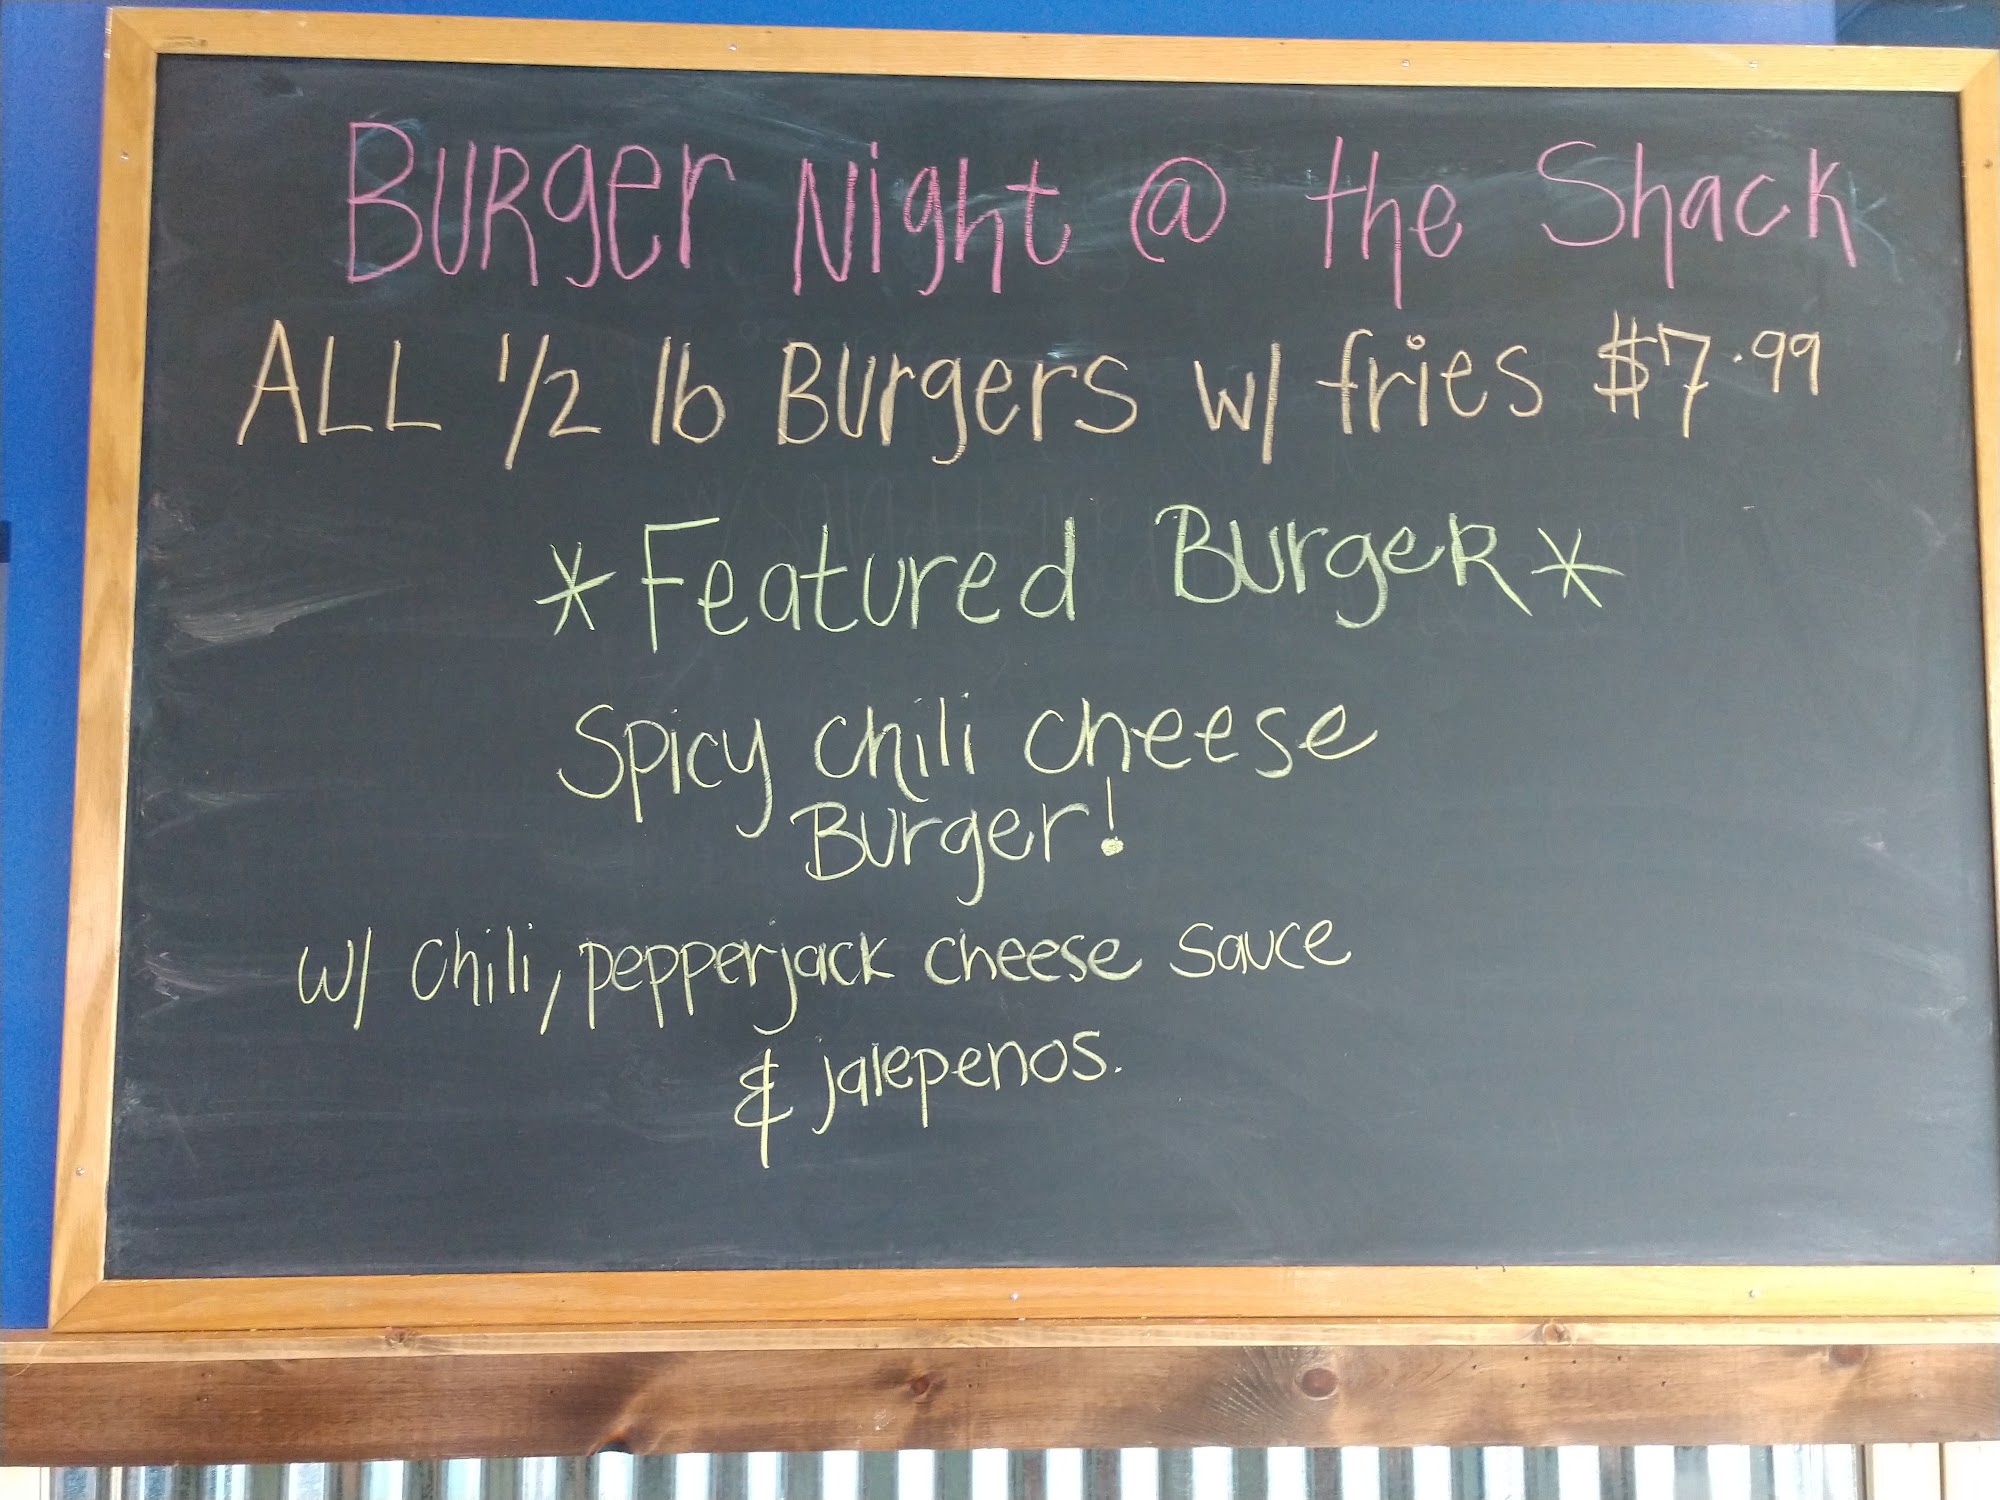 Burger Night @ the Shack
ALL 1/2 lb Burgers w/ fries $7.99
*Featured Burger*
Spicy Chili Cheese
Burger!
w/ Chili, pepperjack cheese sauce
& jalepenos.